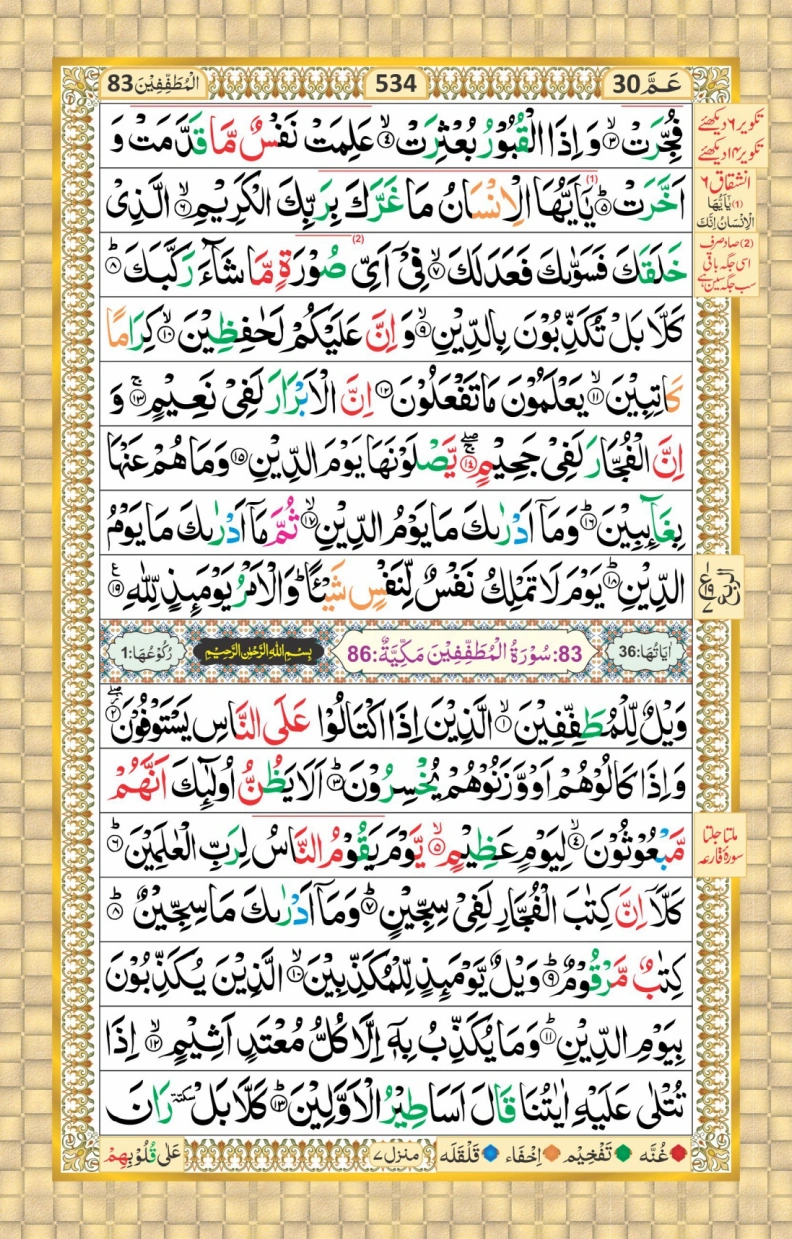 عَمَّ 30
534
الْمُطَفِّفِيْنَ 83
فُجِّرَتْ ۙ‏﴿۳﴾ وَ اِذَا الْقُبُوْرُ بُعْثِرَتْ ۙ‏﴿۴﴾ عَلِمَتْ نَفْسٌ مَّا قَدَّمَتْ وَ
اَخَّرَتْ ؕ‏﴿۵﴾ يٰۤاَيُّهَا (1) الْاِنْسَانُ مَا غَرَّكَ بِرَبِّكَ الْكَرِيْمِ ۙ‏﴿۶﴾ الَّذِىْ
خَلَقَكَ فَسَوّٰىكَ فَعَدَلَكَ ۙ‏﴿۷﴾ فِىْۤ اَىِّ صُوْرَةٍ (2) مَّا شَآءَ رَكَّبَكَ ؕ‏﴿۸﴾
كَلَّا بَلْ تُكَذِّبُوْنَ بِالدِّيْنِ ۙ‏﴿۹﴾ وَ اِنَّ عَلَيْكُمْ لَحٰفِظِيْنَ ۙ‏﴿۱۰﴾ كِرَامًا
كَاتِبِيْنَ ۙ‏﴿۱۱﴾ يَعْلَمُوْنَ مَا تَفْعَلُوْنَ ‏﴿۱۲﴾ اِنَّ الْاَبْرَارَ لَفِىْ نَعِيْمٍ ۚ‏﴿۱۳﴾ وَ
اِنَّ الْفُجَّارَ لَفِىْ جَحِيْمٍ ۚۖ‏﴿۱۴﴾ يَّصْلَوْنَهَا يَوْمَ الدِّيْنِ ‏﴿۱۵﴾ وَمَا هُمْ عَنْهَا
بِغَآئِبِيْنَ ؕ‏﴿۱۶﴾ وَمَاۤ اَدْرٰىكَ مَا يَوْمُ الدِّيْنِ ۙ‏﴿۱۷﴾ ثُمَّ مَاۤ اَدْرٰىكَ مَا يَوْمُ
الدِّيْنِ ؕ‏﴿۱۸﴾ يَوْمَ لَا تَمْلِكُ نَفْسٌ لِّنَفْسٍ شَيْئًا ؕ وَالْاَمْرُ يَوْمَئِذٍ لِّلّٰهِ ‏﴿۱۹﴾
اٰيَاتُهَا:36
83:سُوْرَةُ الْمُطَفِّفِيْنَ مَكِّيَّةٌ:86
بِسْمِ اللّٰهِ الرَّحْمٰنِ الرَّحِيْمِ
رُكُوْعُهَا:1
وَيْلٌ لِّلْمُطَفِّفِيْنَ ۙ‏﴿۱﴾ الَّذِيْنَ اِذَا اكْتَالُوْا عَلَى النَّاسِ يَسْتَوْفُوْنَ ۖ‏﴿۲﴾
وَ اِذَا كَالُوْهُمْ اَوْ وَّزَنُوْهُمْ يُخْسِرُوْنَ ؕ‏﴿۳﴾ اَلَا يَظُنُّ اُولٰٓئِكَ اَنَّهُمْ
مَّبْعُوْثُوْنَ ۙ‏﴿۴﴾ لِيَوْمٍ عَظِيْمٍ ۙ‏﴿۵﴾ يَّوْمَ يَقُوْمُ النَّاسُ لِرَبِّ الْعٰلَمِيْنَ ؕ‏﴿۶﴾
كَلَّاۤ اِنَّ كِتٰبَ الْفُجَّارِ لَفِىْ سِجِّيْنٍ ؕ‏﴿۷﴾ وَمَاۤ اَدْرٰىكَ مَا سِجِّيْنٌ ؕ‏﴿۸﴾
كِتٰبٌ مَّرْقُوْمٌ ؕ‏﴿۹﴾ وَيْلٌ يَّوْمَئِذٍ لِّلْمُكَذِّبِيْنَ ۙ‏﴿۱۰﴾ الَّذِيْنَ يُكَذِّبُوْنَ
بِيَوْمِ الدِّيْنِ ؕ‏﴿۱۱﴾ وَمَا يُكَذِّبُ بِهٖۤ اِلَّا كُلُّ مُعْتَدٍ اَثِيْمٍ ۙ‏﴿۱۲﴾ اِذَا
تُتْلٰى عَلَيْهِ اٰيٰتُنَا قَالَ اَسَاطِيْرُ الْاَوَّلِيْنَ ؕ‏﴿۱۳﴾ كَلَّا بَلْ سكتة رَانَ
غُنَّه تَفْخِيْم اِخْفَاء قَلْقَلَه
منزل ۷
عَلٰى قُلُوْبِهِمْ
تکویر ۶ دیکھئے
تکویر ۱۴ دیکھئے
انشقاق ۶
(1) يٰۤاَيُّهَا
الْاِنْسَانُ اِنَّكَ
(2) صاد صرف
اسی جگہ باقی
سب جگہ سین ہے
الربع
ملتا جلتا
سورۂ قارعہ